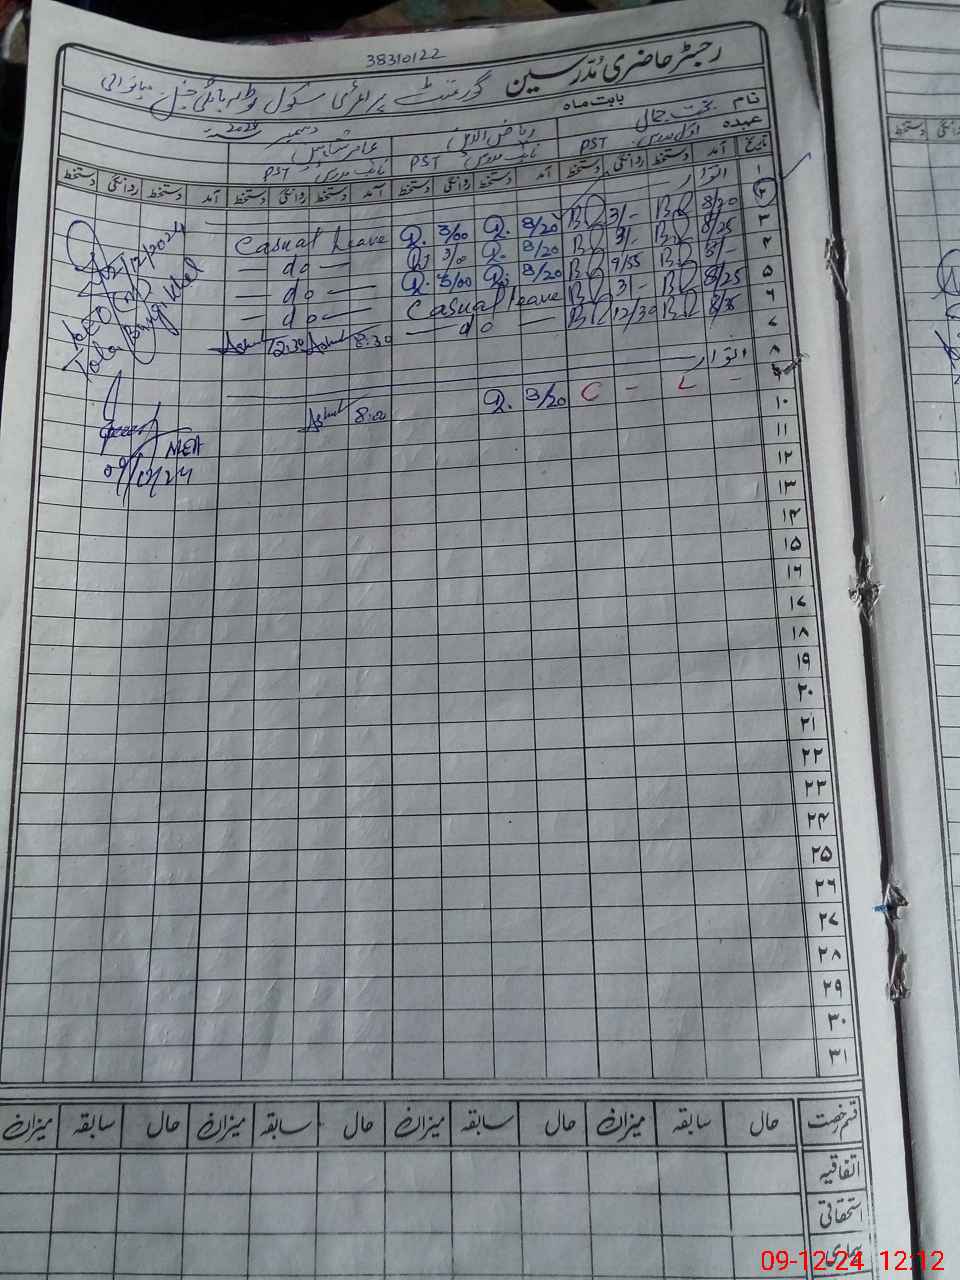 38310122
رجسٹر حاضری مدرسین
گورنمنٹ پرائمری سکول میانوالی
بابت ماہ دسمبر 2024
نام بخت جمال ریاض الدین
عہدہ PST نائب مدرس PST نائب مدرس PST
تاریخ آمد دستخط روانگی دستخط آمد دستخط روانگی دستخط آمد دستخط روانگی دستخط آمد دستخط روانگی دستخط
۱ اتوار
۲ 8/20 3/- 8/20 3/00 Casual Leave
۳ 8/25 3/- 8/20 3/0 — do —
۴ 8/- 9/55 8/20 3/00 — do —
۵ 8/25 3/- Casual leave — do —
۶ 12/30 — do — 8:30 12:30
۷
۸ اتوار
۹ - L - C 8/20 8:00
۱۰
۱۱
۱۲
۱۳
۱۴
۱۵
۱۶
۱۷
۱۸
۱۹
۲۰
۲۱
۲۲
۲۳
۲۴
۲۵
۲۶
۲۷
۲۸
۲۹
۳۰
۳۱
2/12/2024
Tola Bangi Khel
MEA
09/12/24
قسم رخصت حال سابقہ میزان حال سابقہ میزان حال سابقہ میزان حال سابقہ میزان
اتفاقیہ
استحقاقی
بیماری
09-12-24 12:12